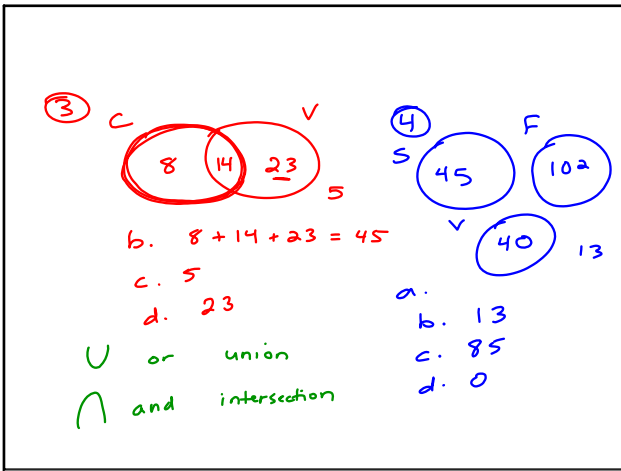 3
C V
8 14 23
5
b. 8 + 14 + 23 = 45
c. 5
d. 23
∪ or union
∩ and intersection
4
S F
45 102
V
40 13
a.
b. 13
c. 85
d. 0